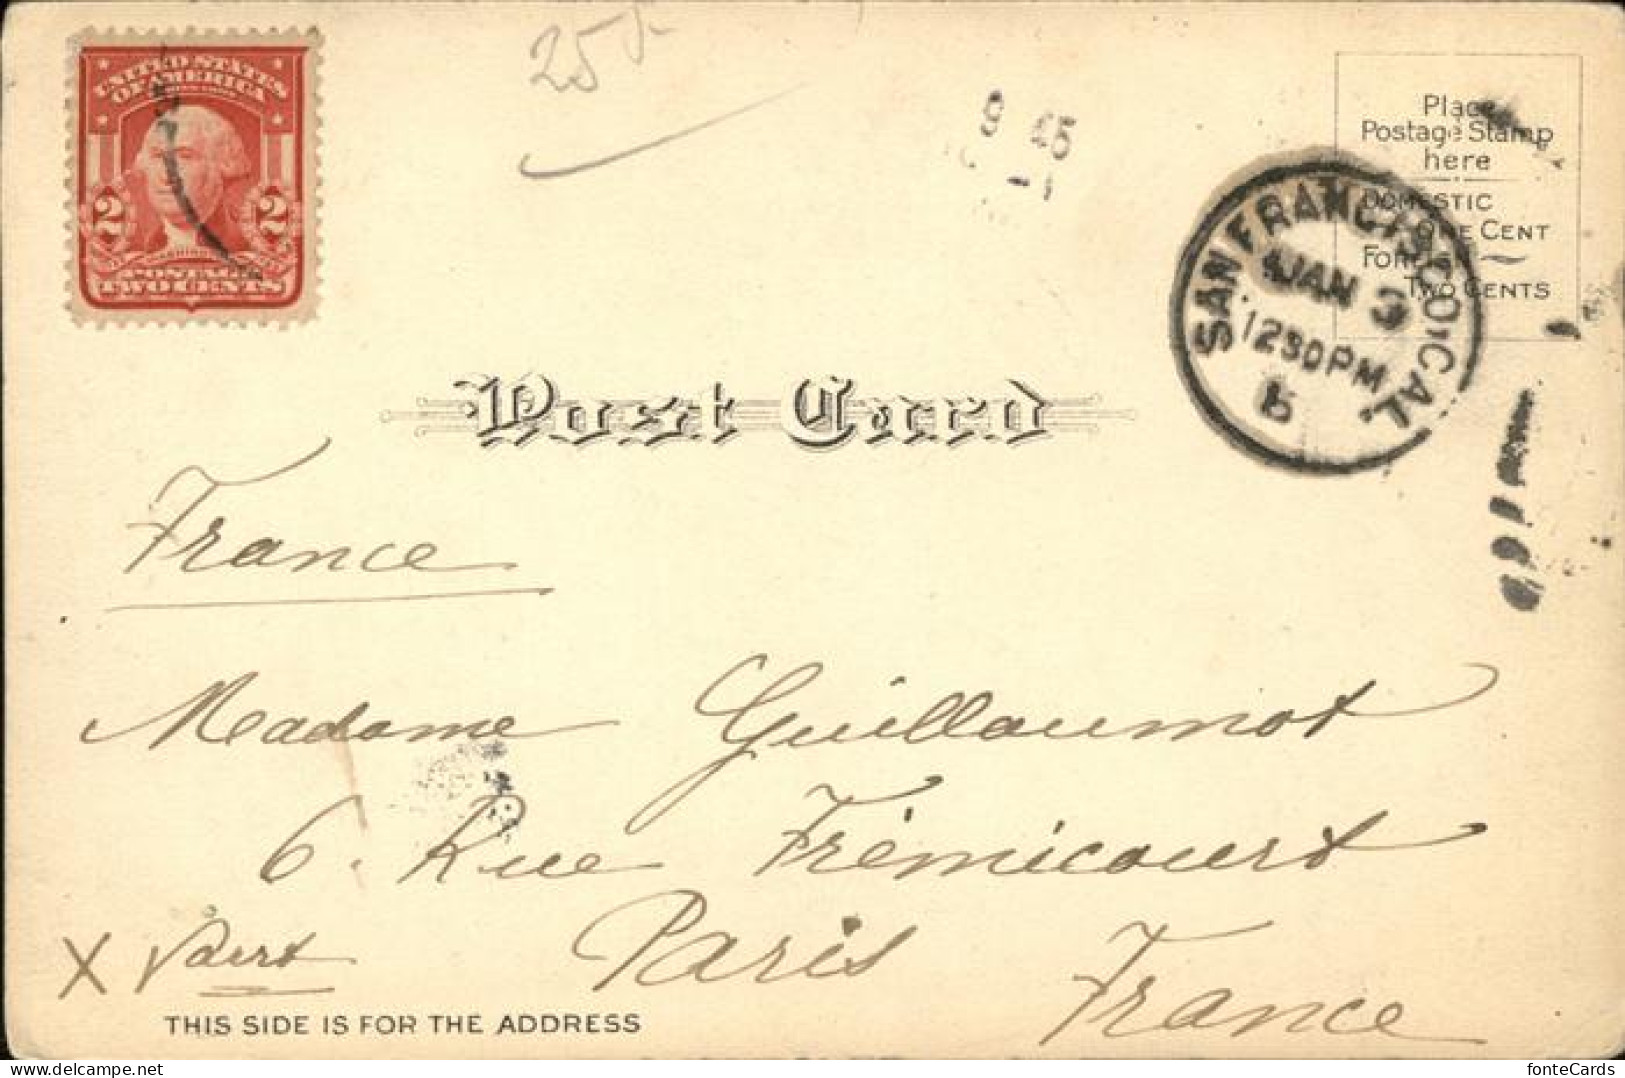 UNITED STATES
OF AMERICA
2 2
WASHINGTON
POSTAGE
TWO CENTS
25 f-
9 45
Place
Postage Stamp
here
DOMESTIC
ONE CENT
FOREIGN
TWO CENTS
SAN FRANCISCO, CAL.
JAN 3
1230PM
Post Card
France
Madame Guillaumot
6. Rue Frémicourt
Paris
France
X
THIS SIDE IS FOR THE ADDRESS
fonteCards